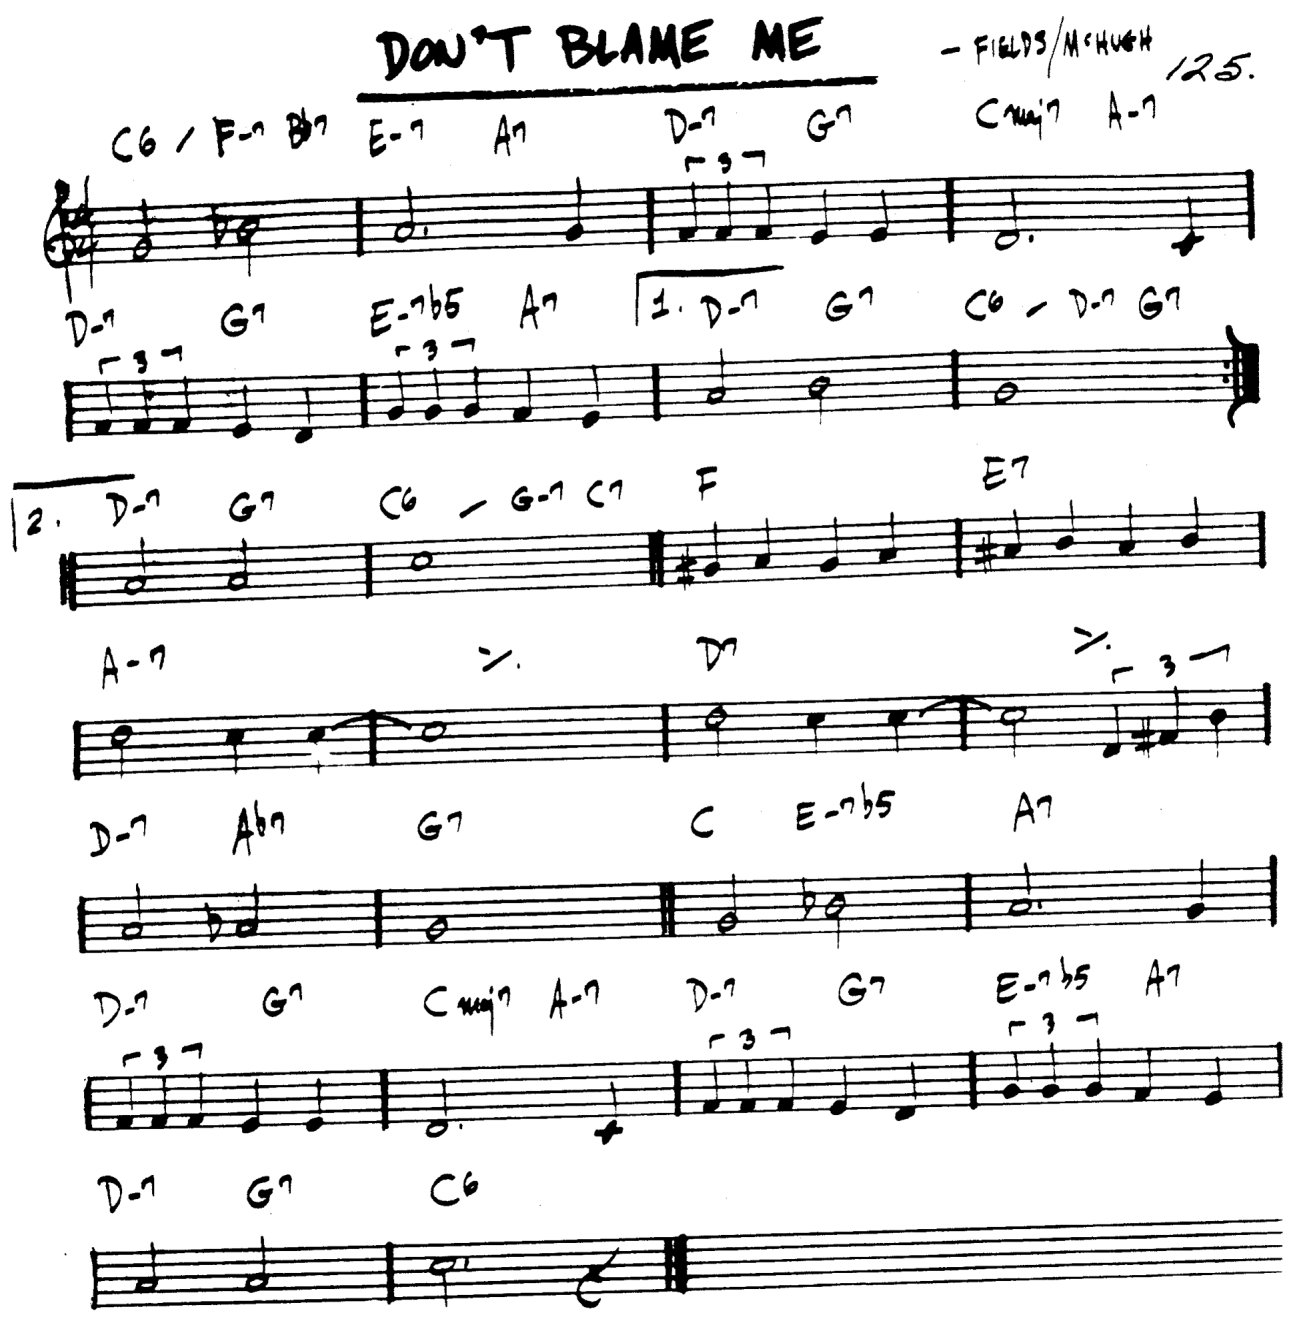 DON'T BLAME ME
- FIELDS/McHUGH
125.
C6 / F-7 Bb7 E-7 A7 D-7 G7 Cmaj7 A-7
3
D-7 G7 E-7b5 A7 1. D-7 G7 C6 / D-7 G7
3 3
2. D-7 G7 C6 / G-7 C7 F E7
A-7 ٪ D7 ٪
3
D-7 Ab7 G7 C E-7b5 A7
D-7 G7 Cmaj7 A-7 D-7 G7 E-7b5 A7
3 3 3
D-7 G7 C6